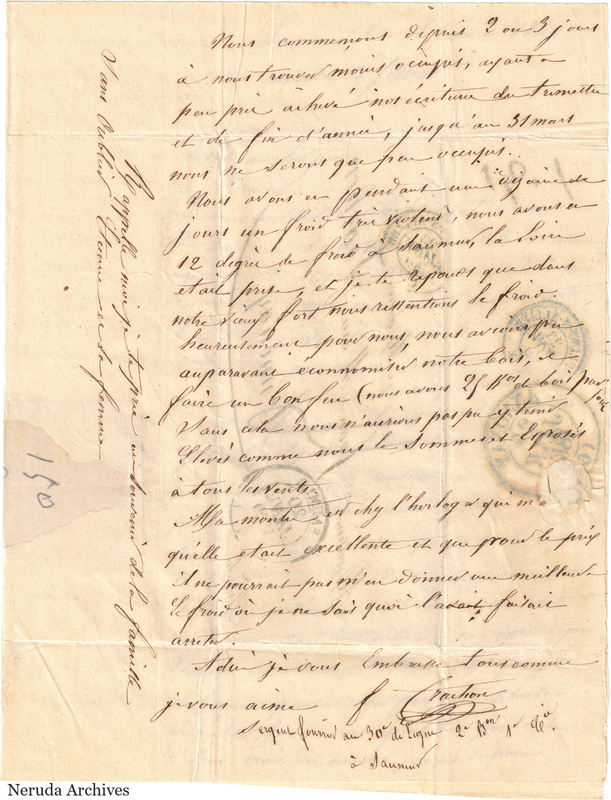 Nous commencons depuis 2 ou 3 jours
à nous trouver moins occupés, ayant a
peu prié achévé nos écriture du trimestre
et de fin d'année, jusqu'au 31 mars
nous ne serons que peu occupés.
Nous avons eu pendant une dizaine de
jours un froid trié violent, nous avons eu
12 degrée de froid à Saumur, la Loire
etait prise, et je te reponds que dans
notre vieux fort nous ressentions le froid.
heureusement pour nous, nous avions peu
auparavant économiser notre bois, et
faire un bon feu (nous avons 25 Kos de bois par jour
Sans cela nous n'aurions pas pu y tenir
Elevés comme nous le Sommes et Exposés
à tous les vents.
Ma montre est chez l'horloger qui m'a
qu'elle etait excellente et que pour le prix
il ne pourrait pas m'en donner une meilleure
le froid où je ne sais quoi l'avait faisait
arreter.
Adieu je vous Embrasse tous comme
je vous aime f Crachon
Sergent fourrier au 30e de Ligne 2e Bon 1re Cie.
à Saumur
Rappelle moi je te prie au souvenir de la famille
sans oublier Etienne et sa femme
150
Neruda Archives